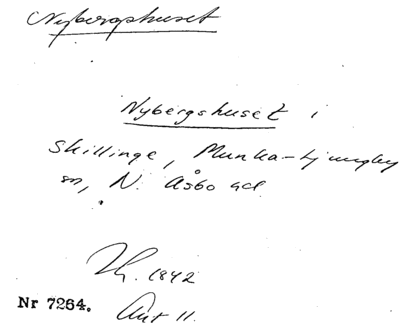 Nybergshuset
Nybergshuset i
Skillinge, Munka-Ljungby
sn, N. Åsbo hd
1842
Nr 7264.